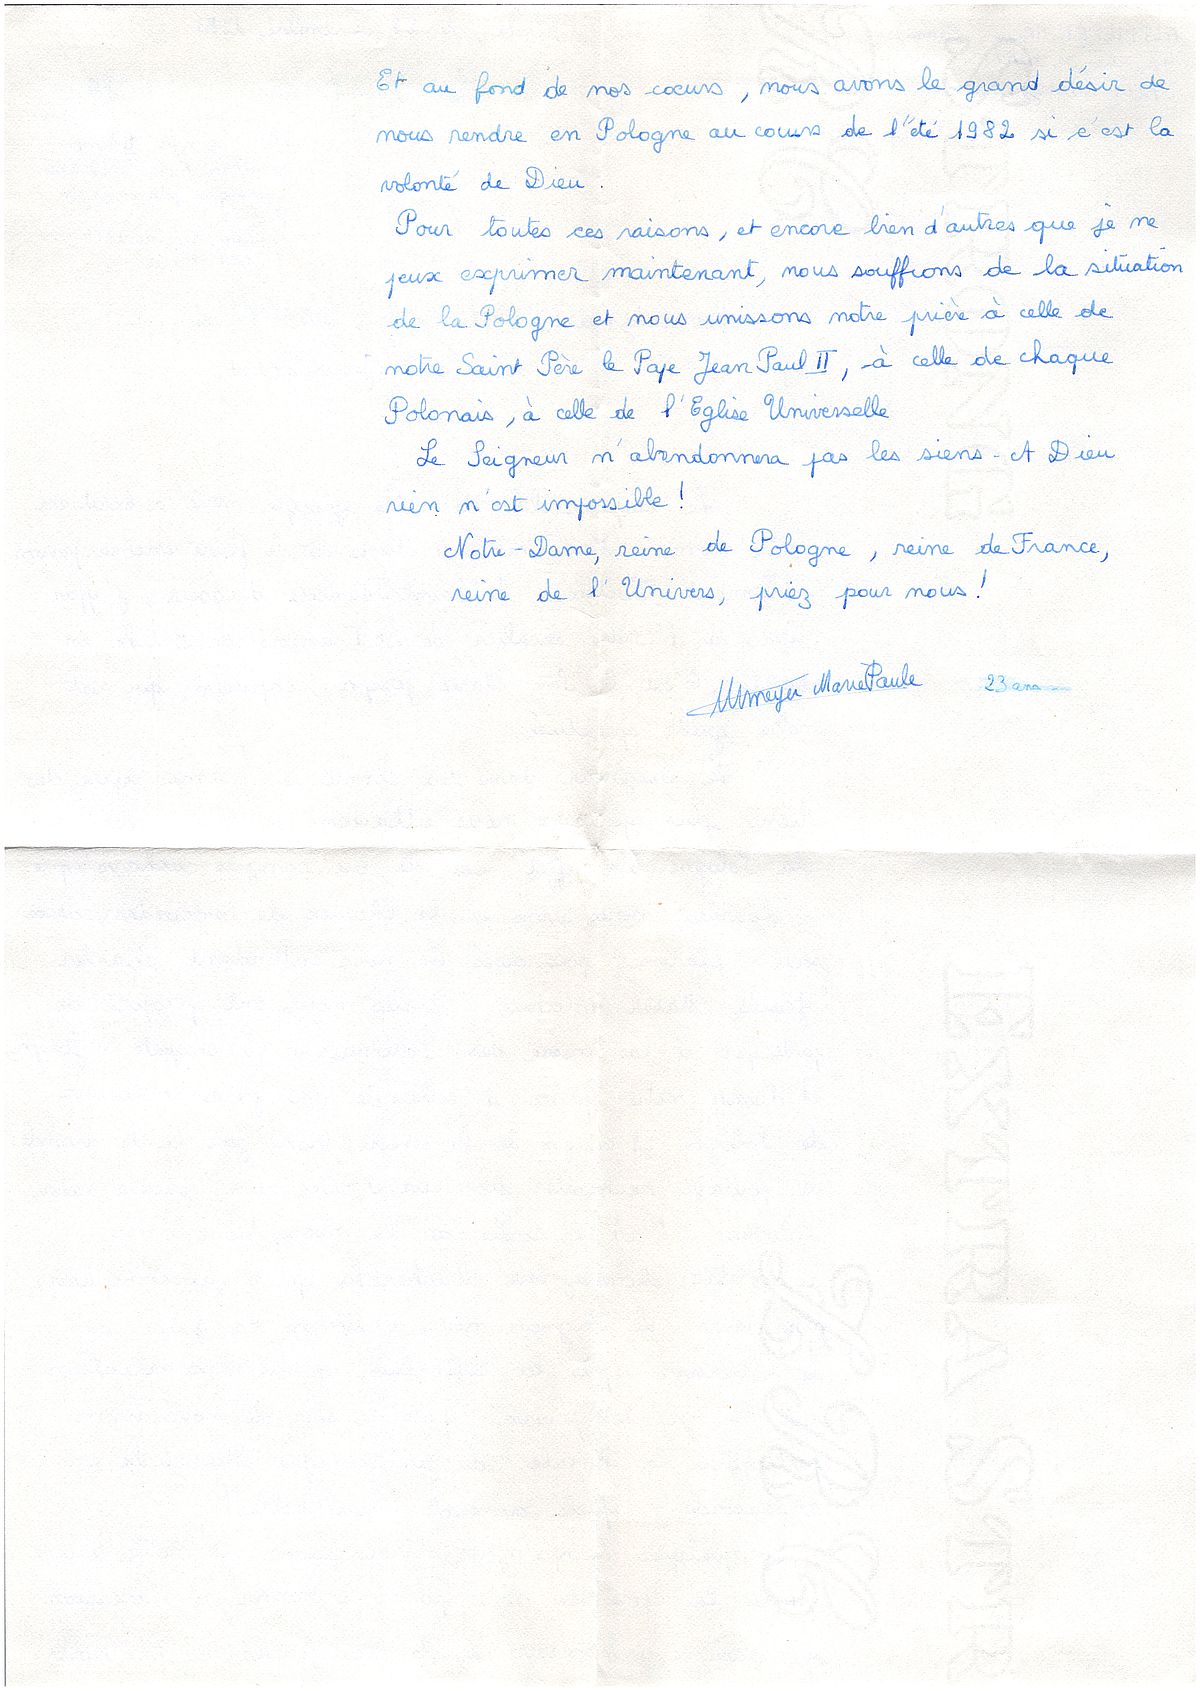 Et au fond de nos cœurs, nous avons le grand désir de
nous rendre en Pologne au cours de l'été 1982 si c'est la
volonté de Dieu.
Pour toutes ces raisons, et encore bien d'autres que je ne
peux exprimer maintenant, nous souffrons de la situation
de la Pologne et nous unissons notre prière à celle de
notre Saint Père le Pape Jean Paul II, à celle de chaque
Polonais, à celle de l'Eglise Universelle
Le Seigneur n'abandonnera pas les siens - A Dieu
rien n'est impossible !
Notre-Dame, reine de Pologne, reine de France,
reine de l'Univers, priez pour nous !
Marie Paule 23 ans